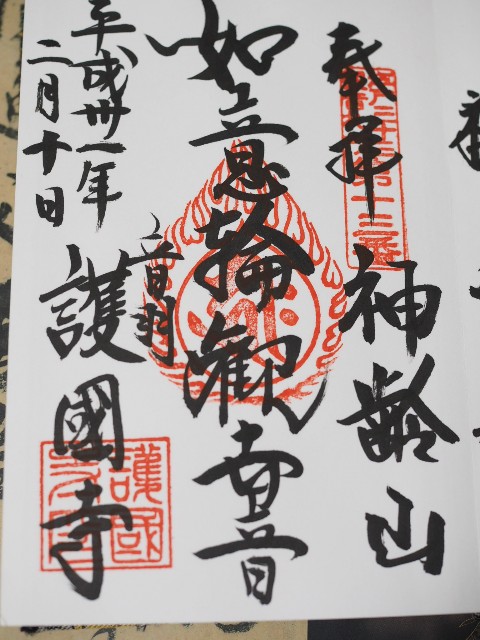 奉拝
神齢山
如意輪観世音
音羽
護國寺
平成卅一年
二月十日